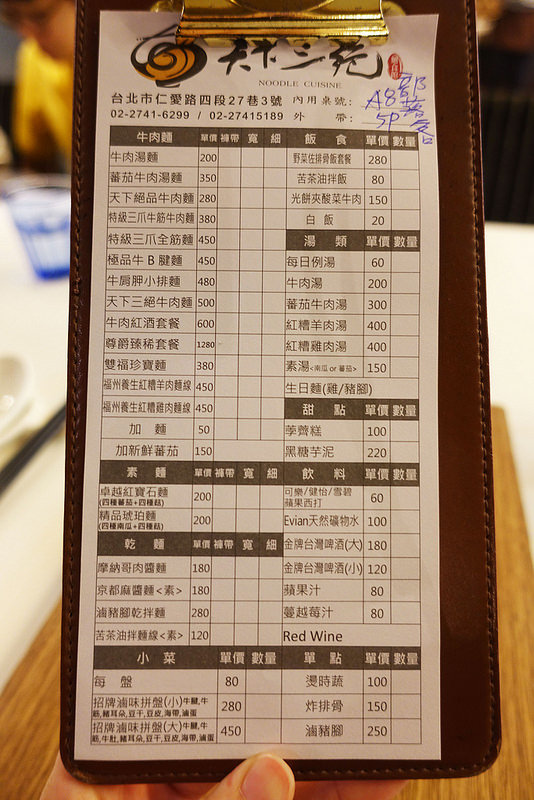 天下三絕
NOODLE CUISINE
台北市仁愛路四段27巷3號 內用桌號: A8
02-2741-6299 / 02-27415189 外 帶: 5P
牛肉麵 單價 褲帶 寬 細
牛肉湯麵 200
蕃茄牛肉湯麵 350
天下絕品牛肉麵 280
特級三爪牛筋牛肉麵 380
特級三爪全筋麵 450
極品牛B腱麵 450
牛肩胛小排麵 480
天下三絕牛肉麵 500
牛肉紅酒套餐 600
尊爵臻稀套餐 1280
雙福珍寶麵 380
福州養生紅糟羊肉麵線 450
福州養生紅糟雞肉麵線 450
加 麵 50
加新鮮蕃茄 150
素 麵 單價 褲帶 寬 細
卓越紅寶石麵 200
(四種蕃茄+四種菇)
精品琥珀麵 200
(四種南瓜+四種菇)
乾 麵 單價 褲帶 寬 細
摩納哥肉醬麵 180
京都麻醬麵<素> 180
滷豬腳乾拌麵 280
苦茶油拌麵線<素> 120
小 菜 單價 數量
每 盤 80
招牌滷味拼盤(小)牛腱,牛 280
筋,豬耳朵,豆干,豆皮,海帶,滷蛋
招牌滷味拼盤(大)牛腱,牛 450
筋,牛肚,豬耳朵,豆干,豆皮,海帶,滷蛋
飯 食 單價 數量
野菜佐排骨飯套餐 280
苦茶油拌飯 80
光餅夾酸菜牛肉 150
白 飯 20
湯 類 單價 數量
每日例湯 60
牛肉湯 200
蕃茄牛肉湯 300
紅糟羊肉湯 400
紅糟雞肉湯 400
素湯<南瓜 or 蕃茄> 150
生日麵(雞/豬腳)
甜 點 單價 數量
荸薺糕 100
黑糖芋泥 220
飲 料 單價 數量
可樂/健怡/雪碧 60
蘋果西打
Evian天然礦物水 100
金牌台灣啤酒(大) 180
金牌台灣啤酒(小) 120
蘋果汁 80
蔓越莓汁 80
Red Wine
單 點 單價 數量
燙時蔬 100
炸排骨 150
滷豬腳 250